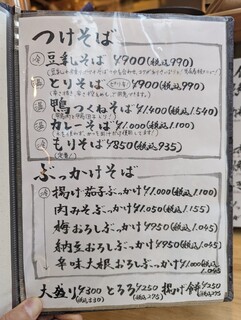 つけそば
冷 豆乳そば ¥900(税込990)
温 とりそば ¥900(税込990)
温 鴨つくねそば ¥1,400(税込1,540)
温 カレーそば ¥1,000(税込1,100)
冷 もりそば ¥850(税込935)
ぶっかけそば
冷 揚げ茄子ぶっかけ ¥1,000(税込1,100)
肉みそぶっかけ ¥1,050(税込1,155)
梅おろしぶっかけ ¥950(税込1,045)
納豆おろしぶっかけ ¥950(税込1,045)
辛味大根おろしぶっかけ
大盛り ¥300 とろろ ¥250 揚げ餅 ¥250
(税込330) (税込275) (税込275)